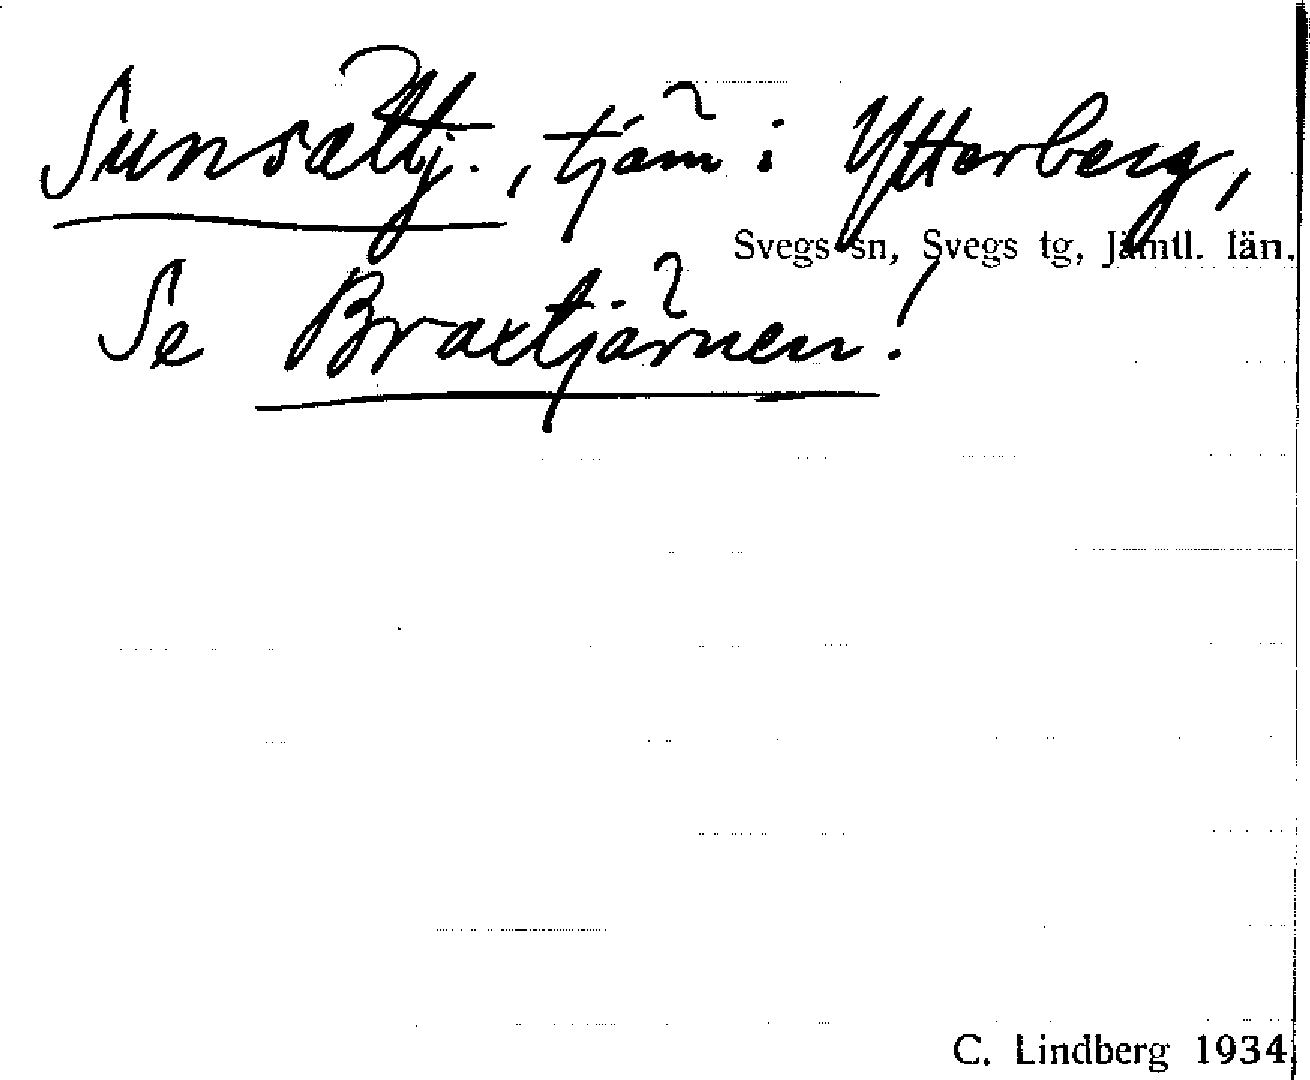 Sunsättj., tjärn i Ytterberg,
Svegs sn, Svegs tg, Jämtl. län.
Se Braxtjärnen!
C. Lindberg 1934